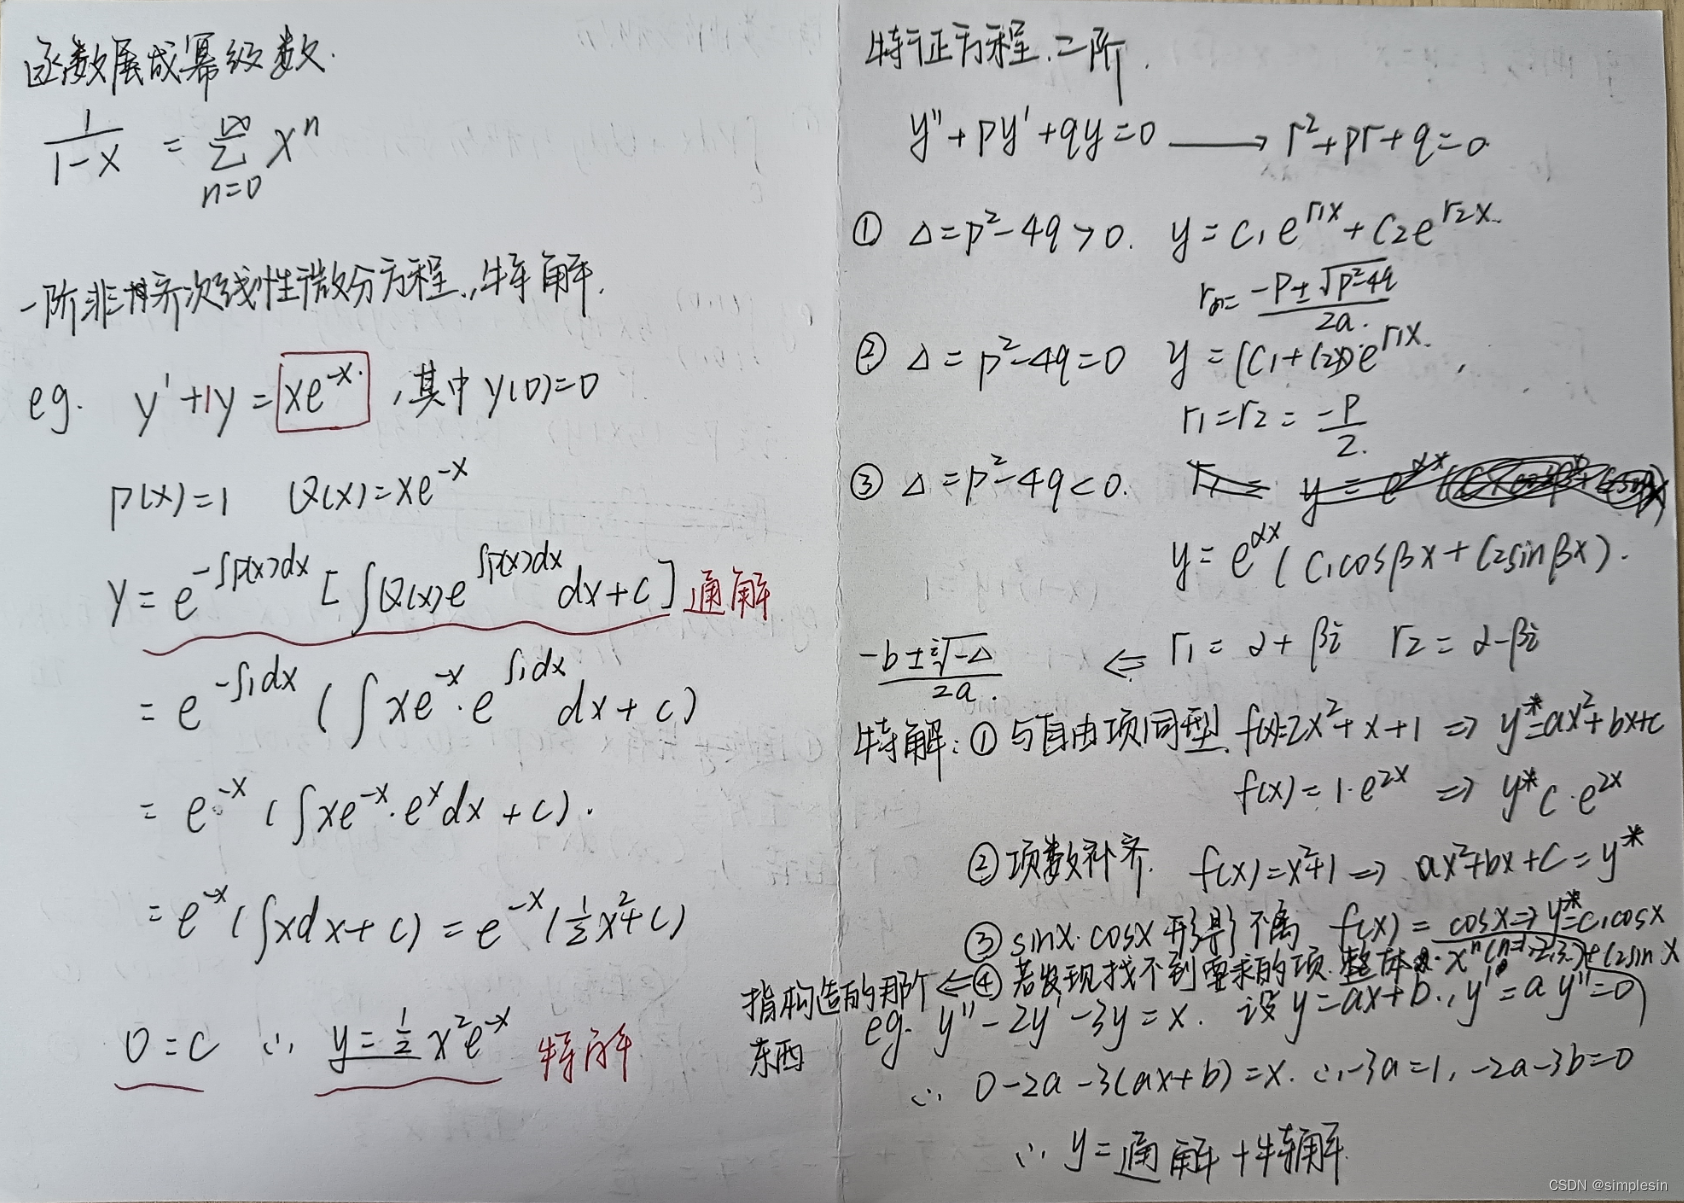 函数展成幂级数.
1/(1-x) = ∑_{n=0}^{∞} x^n
一阶非齐次线性微分方程.,特解.
eg. y' + 1y = xe^{-x}. ,其中 y(0)=0
p(x)=1 Q(x)=xe^{-x}
y = e^{-∫p(x)dx} [∫Q(x)e^{∫p(x)dx} dx+c] 通解
= e^{-∫1dx} (∫xe^{-x}·e^{∫1dx} dx+c)
= e^{-x} (∫xe^{-x}·e^{x}dx+c).
= e^{-x}(∫xdx+c) = e^{-x}(1/2 x^2+c)
0=c ∴ y=1/2 x^2e^{-x} 特解
特征方程.二阶.
y''+py'+qy=0 → r^2+pr+q=0
① Δ=p^2-4q>0. y=c1e^{r1x}+c2e^{r2x}.
= (-p±√(p^2-4q))/2a.
② Δ=p^2-4q=0 y=(c1+c2x)e^{r1x}.
r1=r2= -p/2.
③ Δ=p^2-4q<0.
y=e^{αx}(c1cosβx+c2sinβx).
(-b±√(-Δ))/2a. ⇐ r1=α+βi r2=α-βi
特解:① 与自由项同型. f(x)=2x^2+x+1 ⇒ y*=ax^2+bx+c
f(x)=1·e^{2x} ⇒ y* c·e^{2x}
② 项数补齐. f(x)=x^2+1 ⇒ ax^2+bx+c=y*
③ sinx.cosx 形影不离 f(x)=cosx ⇒ y*=c1cosx
+c2sinx
指构造的那个 ⇐ ④ 若发现找不到要求的项.整体 x^n(n=1,2,3.)
东西
eg. y''-2y'-3y=x. 设 y=ax+b., y'=a y''=0
∴ 0-2a-3(ax+b)=x. ∴ -3a=1, -2a-3b=0
∴ y=通解+特解
CSDN @simplesin